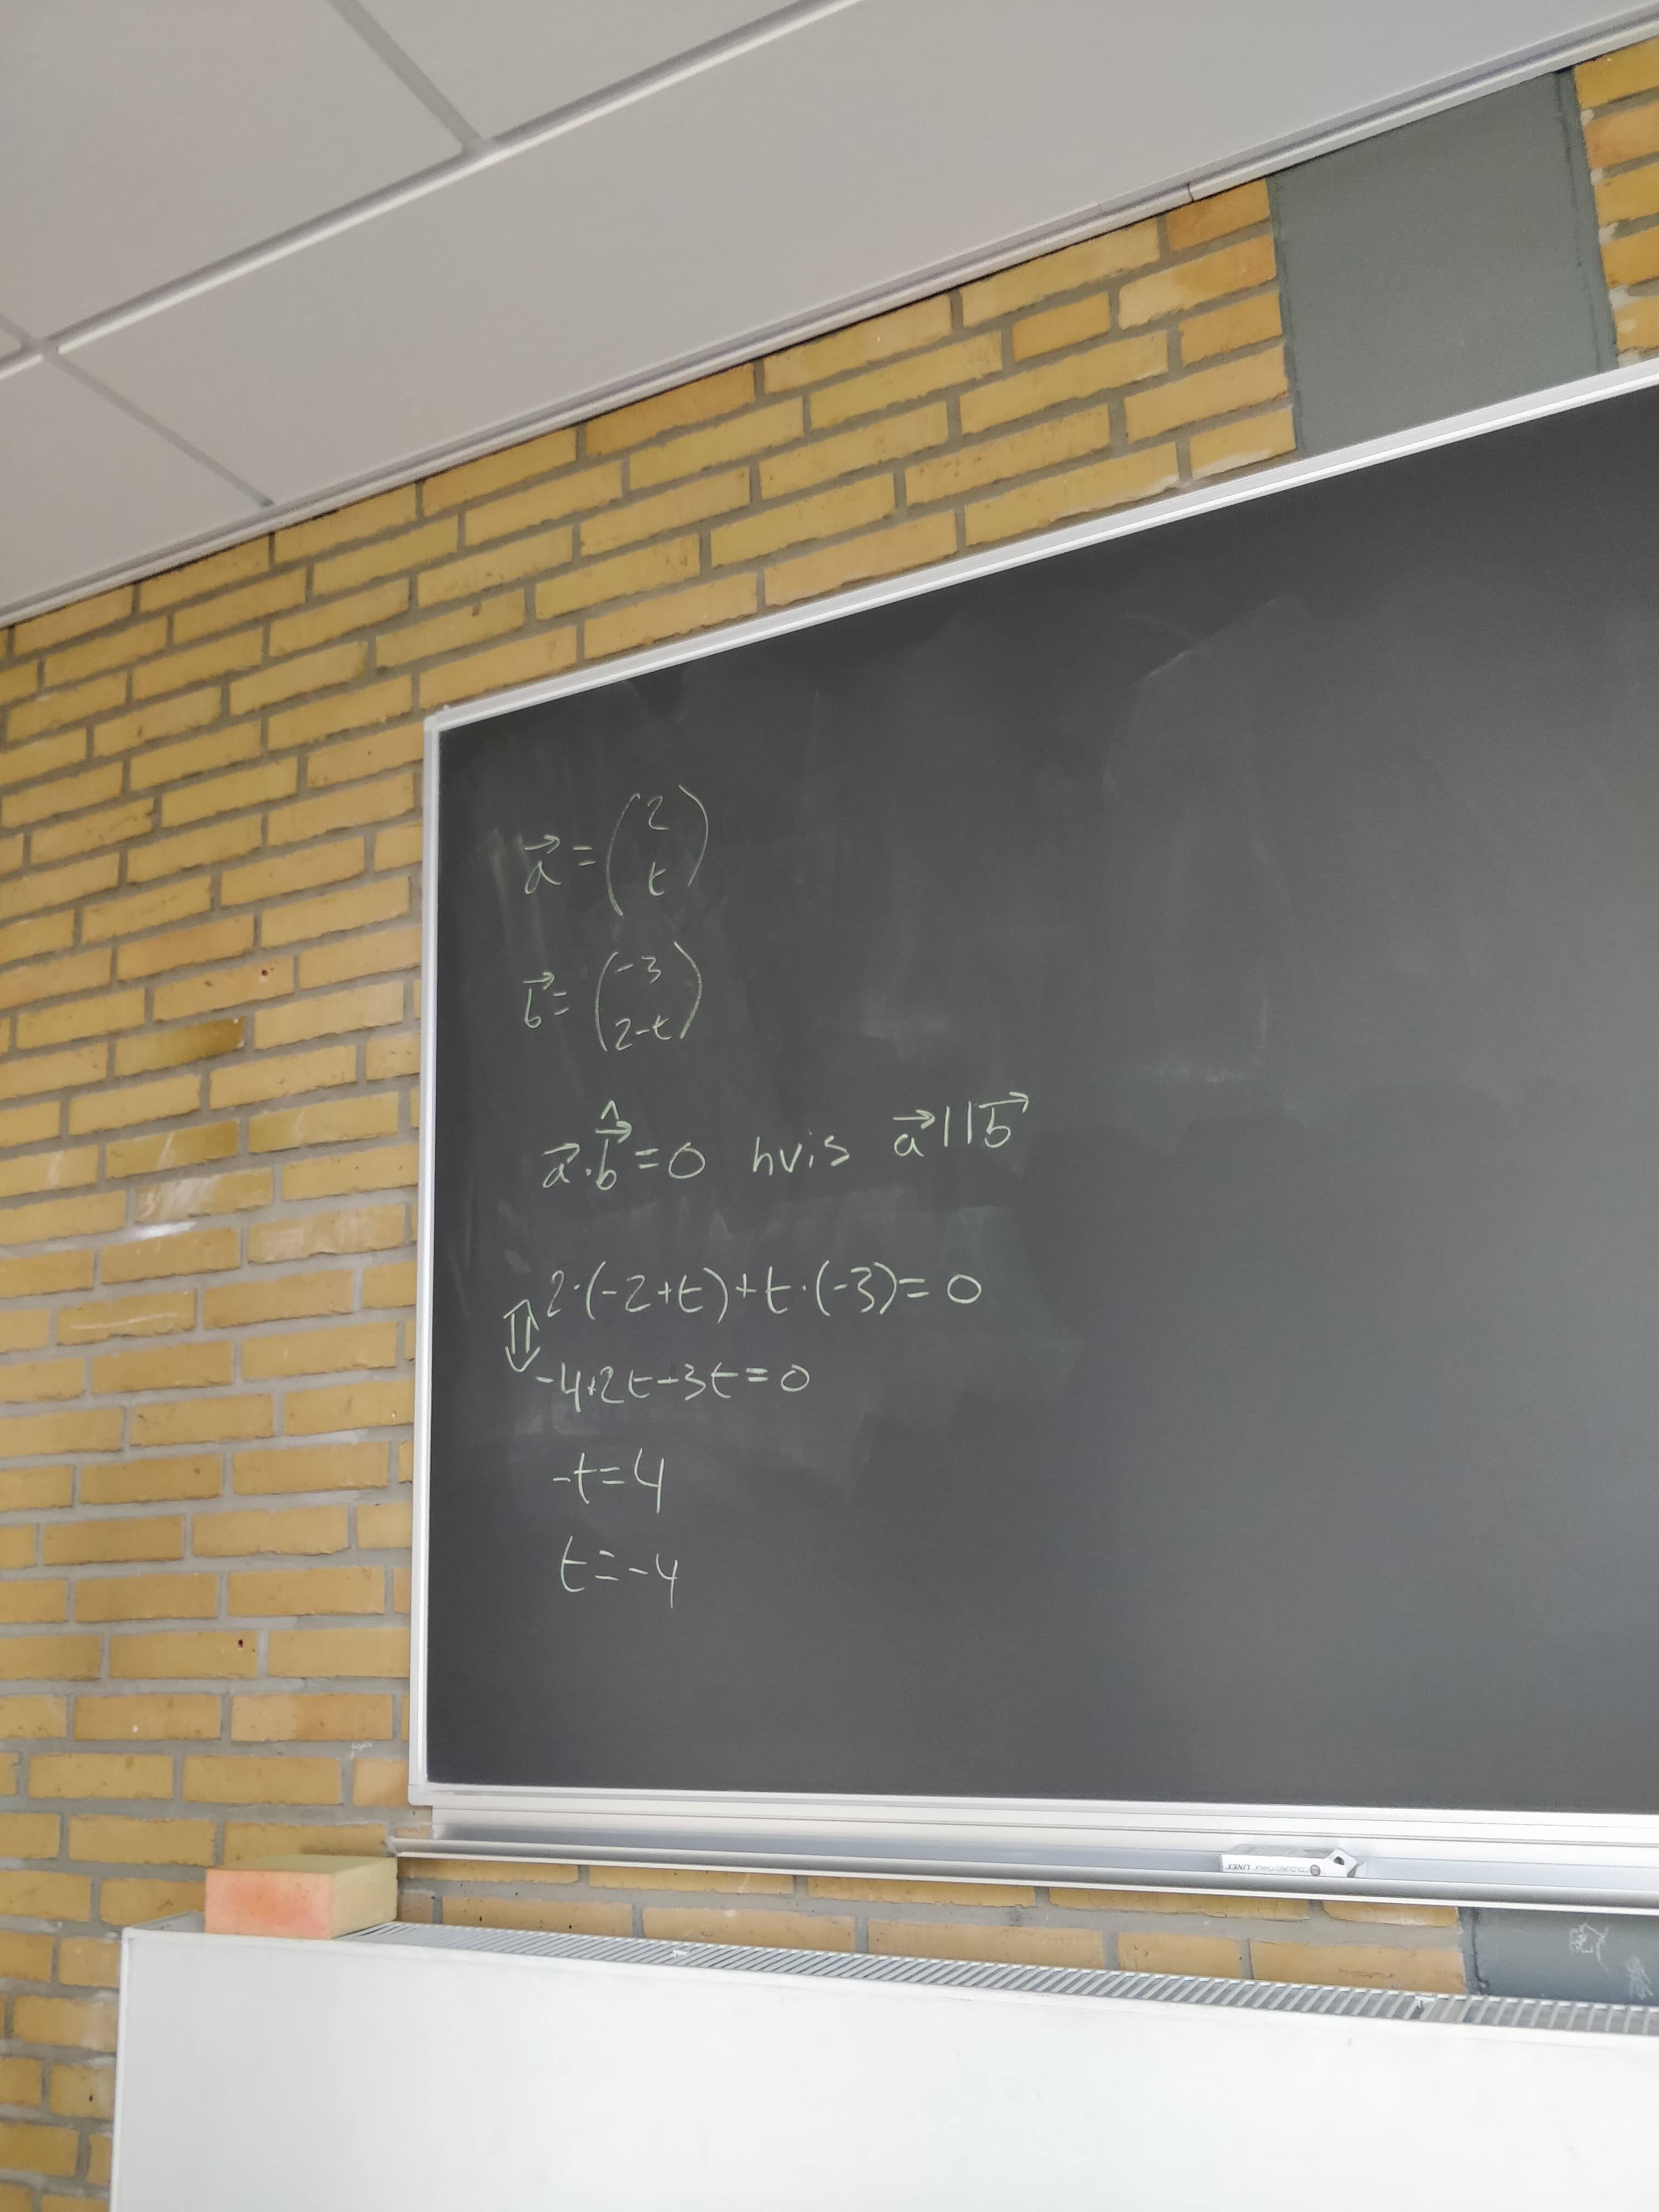 a⃗ = (2
t)
b⃗ = (-3
2-t)
a⃗ · b̂⃗ = 0 hvis a⃗ || b⃗
⇕ 2·(-2+t)+t·(-3)=0
-4+2t-3t=0
-t=4
t=-4
LINEX